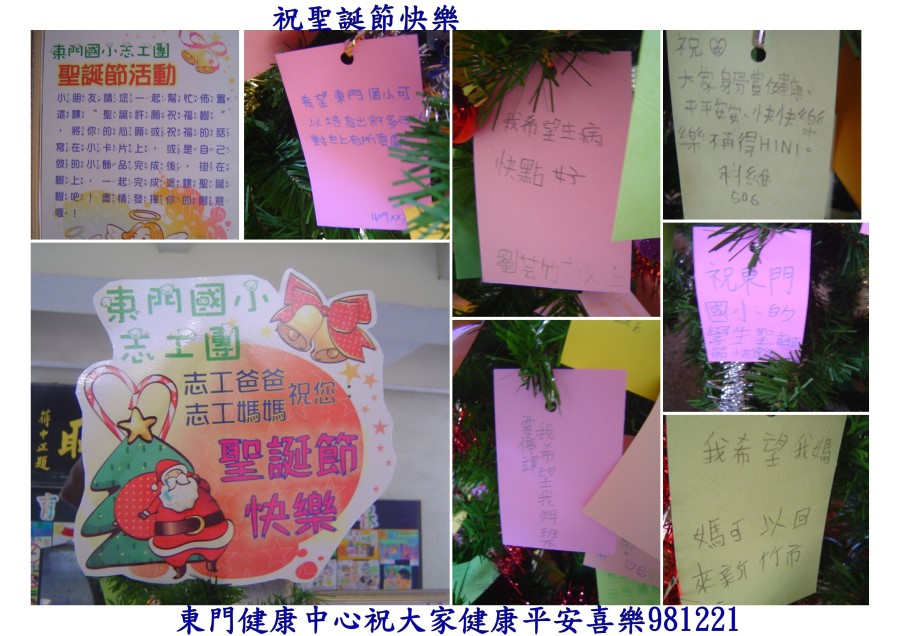 祝聖誕節快樂
東門國小志工團
聖誕節活動
小朋友請您一起幫忙佈置
這棵〝聖誕許願祝福樹〞
，將你的心願或祝福的話
寫在小卡片上，或是自己
做的小飾品完成後，掛在
樹上，一起完成這棵聖誕
樹吧！盡情發揮你的創意
喔！
希望東門國小可
以培育出許多
對社上有所貢獻
我希望生病
快點好
祝
大家身體健康、
平平安安、快快樂
樂不再得H1N1。
科維
506
祝東門
國小的
學生聖誕
節快樂
東門國小
志工團
志工爸爸
志工媽媽
祝您：
聖誕節
快樂
蔣中正題
我希望我們
我希望我媽
媽可以回
來新竹市
東門健康中心祝大家健康平安喜樂981221